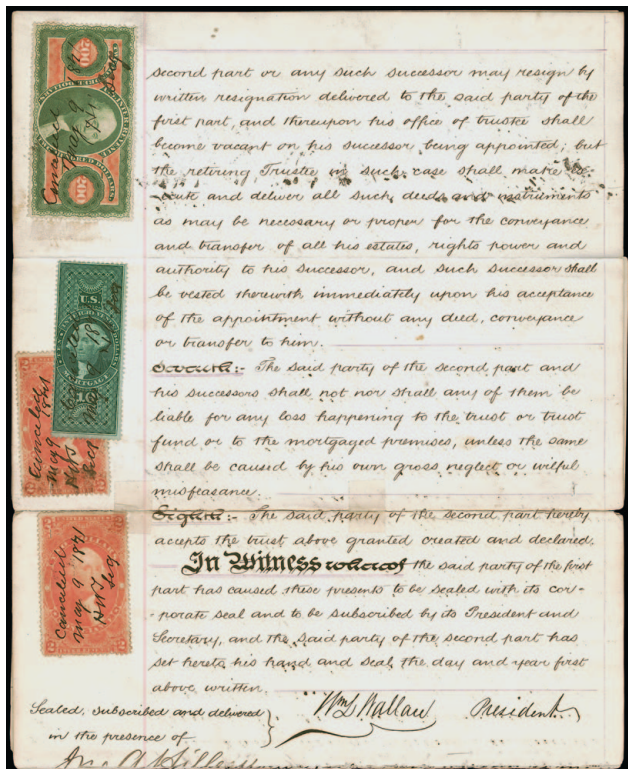 second part or any such successor may resign by
written resignation delivered to the said party of the
first part, and thereupon his office of trustee shall
become vacant on his successor being appointed; but
the retiring Trustee in such case shall make exe-
cute and deliver all such deeds and instruments
as may be necessary or proper for the conveyance
and transfer of all his estates, rights power and
authority to his successor, and such successor shall
be vested therewith immediately upon his acceptance
of the appointment without any deed, conveyance
or transfer to him.
Seventh:- The said party of the second part and
his successors shall not nor shall any of them be
liable for any loss happening to the trust or trust
fund or to the mortgaged premises, unless the same
shall be caused by his own gross neglect or wilful
misfeasance.
Eighth:- The said party of the second part hereby
accepts the trust above granted created and declared.
In Witness whereof the said party of the first
part has caused these presents to be sealed with its cor-
-porate seal and to be subscribed by its President and
Secretary, and the said party of the second part has
set hereto his hand and seal, the day and year first
above written.
Wm S Wallace President
Sealed, subscribed and delivered
in the presence of
Cancelled
May 9
U.S.
MORTGAGE
10
Cancelled
May 9 1871
Cancelled
May 9 1871